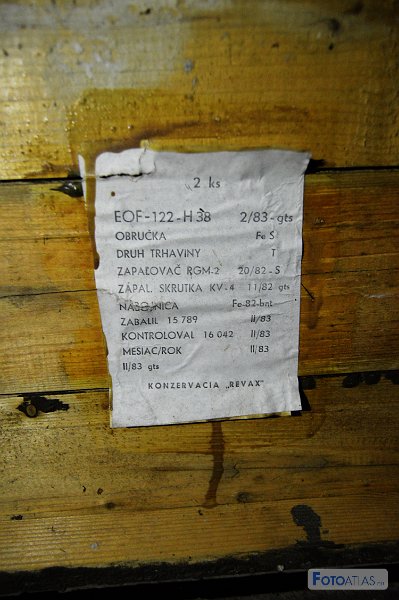 2 ks
EOF-122-H38 2/83-gts
OBRUČKA Fe S
DRUH TRHAVINY T
ZAPAĽOVAČ RGM-2 20/82-S
ZÁPAL. SKRUTKA KV-4 11/82 gts
NÁBOJNICA Fe 82-bnt
ZABALIL 15 789 II/83
KONTROLOVAL 16 042 II/83
MESIAC/ROK II/83
II/83 gts
KONZERVACIA „REVAX"
FOTOATLAS